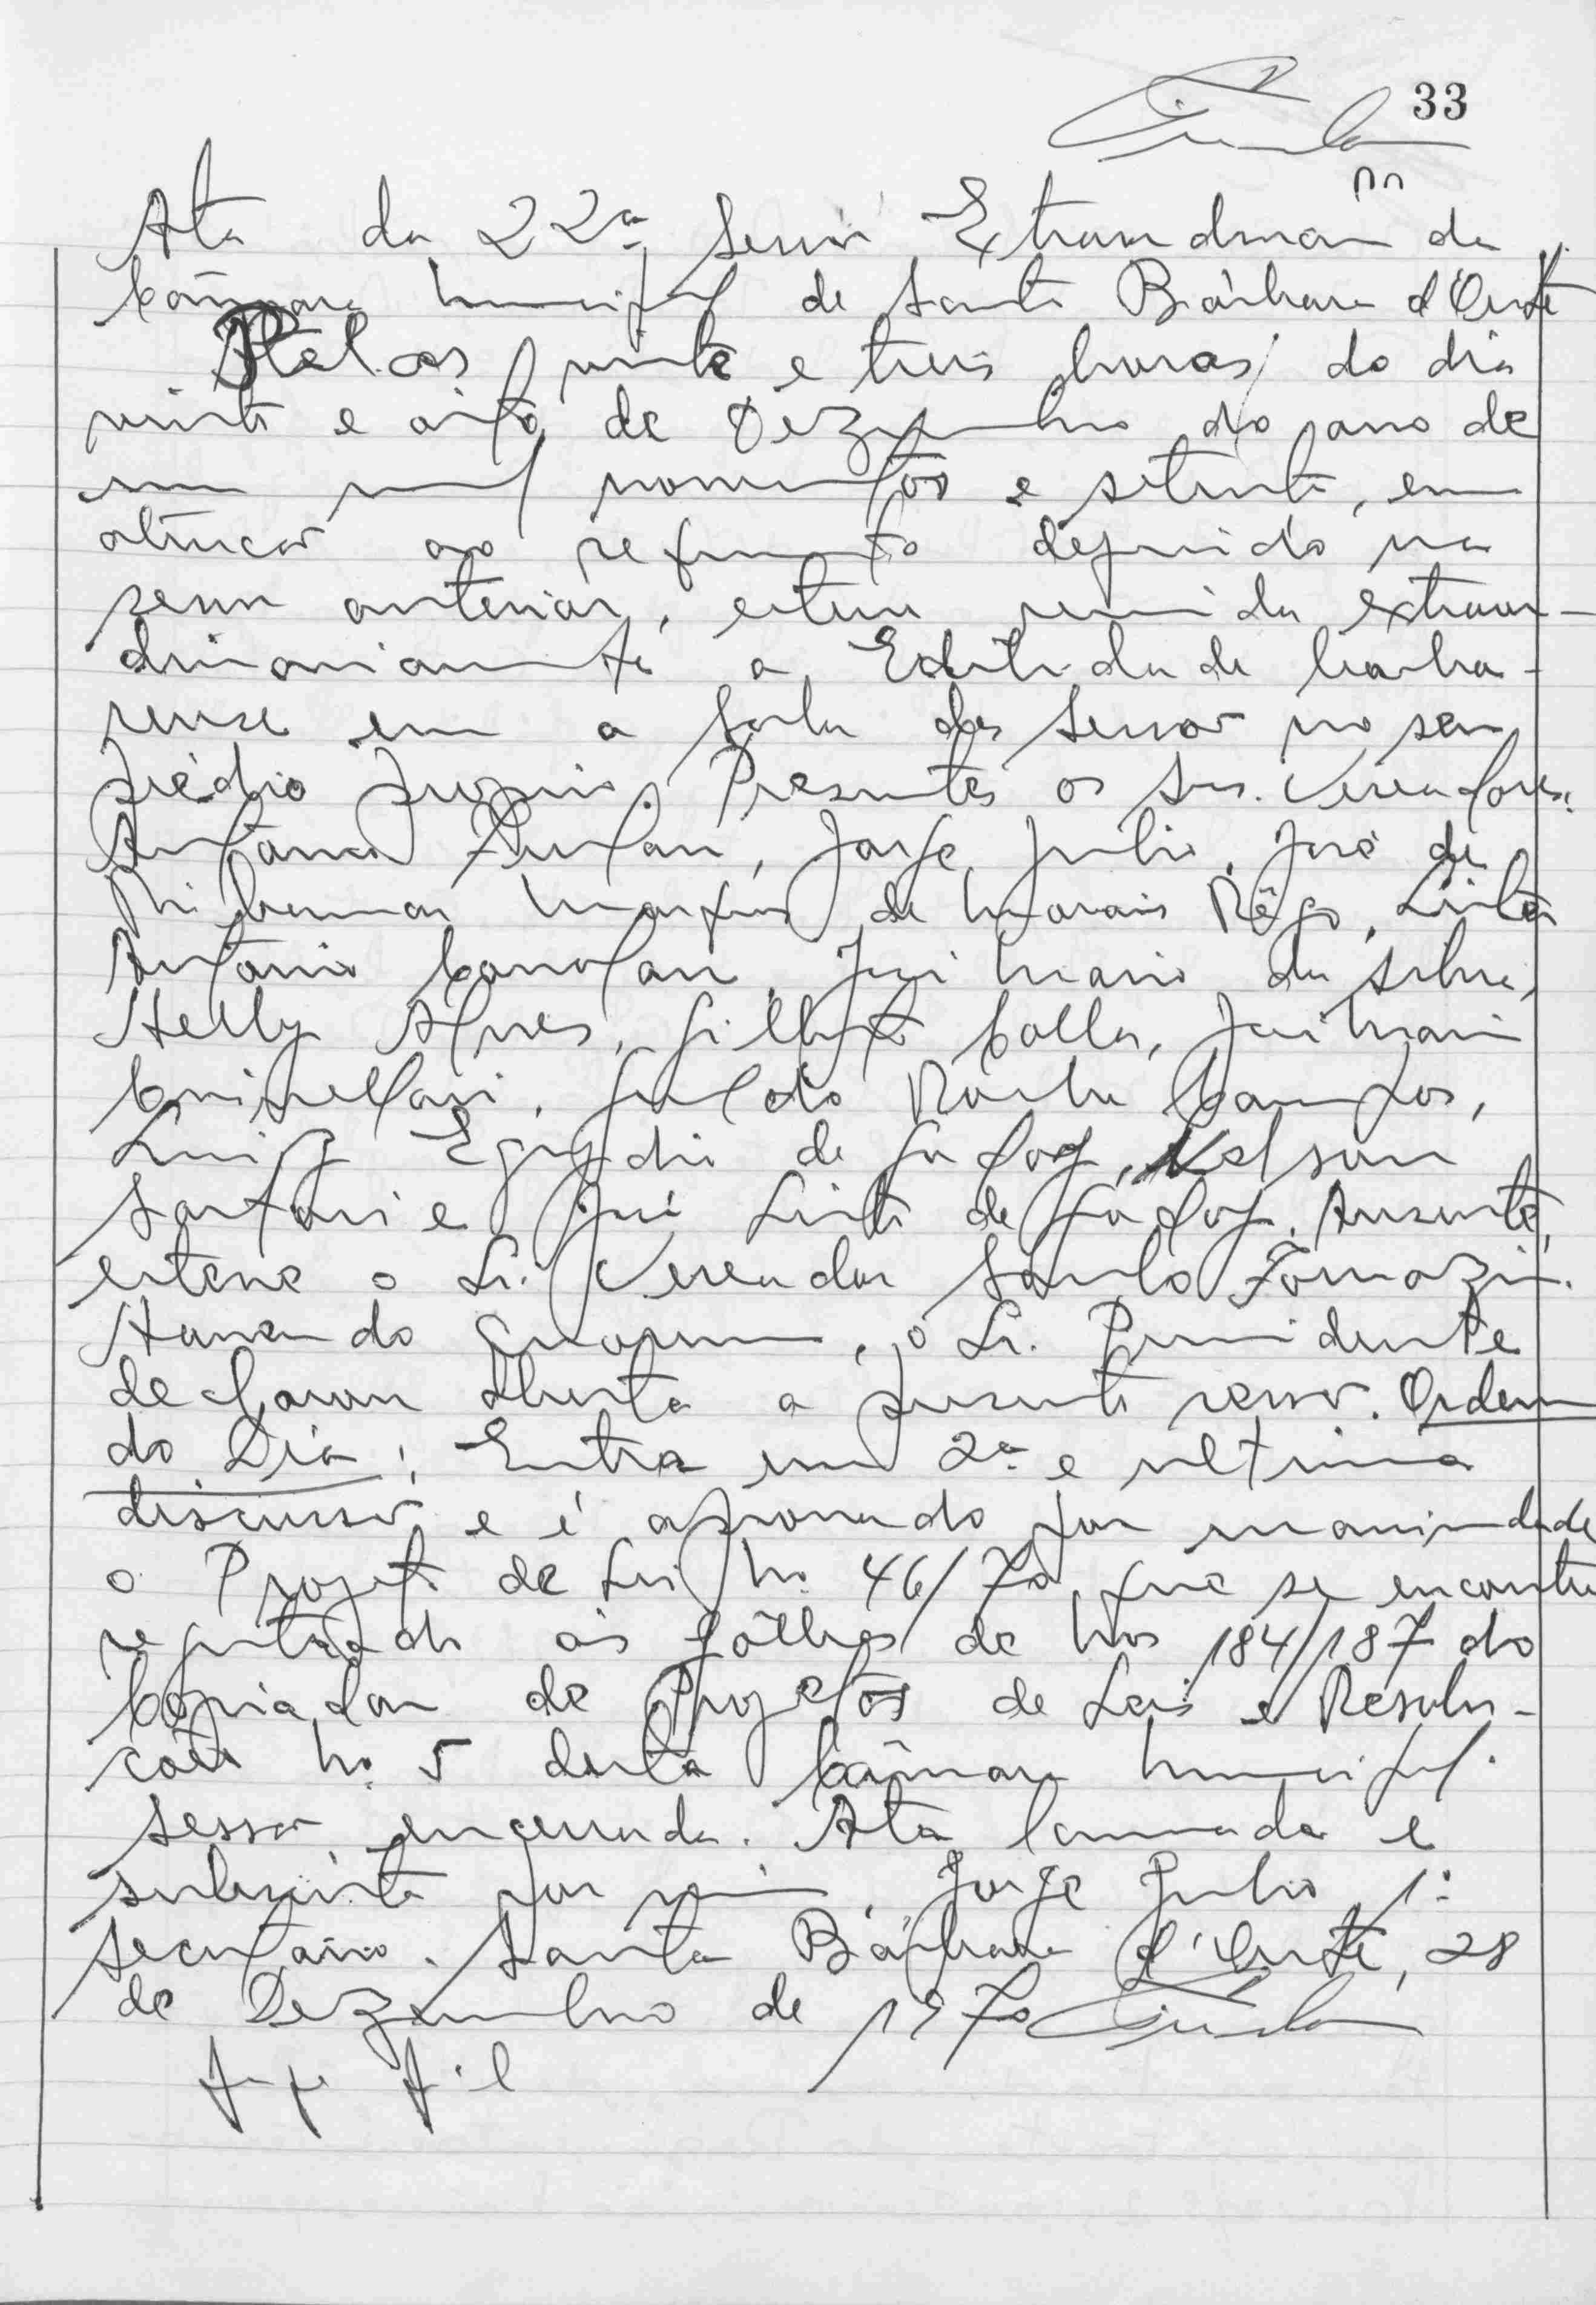 33
Ata da 22ª Sessão Extraordinária da
Câmara Municipal de Santa Bárbara d'Oeste
Pelas vinte e três horas do dia
vinte e oito de Dezembro do ano de
um mil novecentos e setenta, em
atenção ao requerimento deferido na
sessão anterior, esteve reunida extraor-
dinariamente a Edilidade barba-
rense em a Sala das Sessões no seu
prédio próprio. Presentes os Srs. Vereadores:
Antônio Furlan, Jorge Julio, José de
Marques de Morais Rêgo,
Antônio, José Mario da Silva,
Helly Alves, Gilberto Calla, José Maria
, Geraldo Rocha Campos,
Luiz Egydio de Godoy, Nelson
Sartori e José Leite de Godoy. Ausente
esteve o Sr. Vereador Santo Fornazin.
Havendo Quorum, o Sr. Presidente
declarou aberta a presente sessão. Ordem
do Dia: Entra em 2ª e ultima
discussão e é aprovado por unanimidade
o Projeto de Lei No. 46/70, que se encontra
registrado às fôlhas de Nos 184/187 do
Copiador de Projetos de Leis e Resolu-
ções No. 5 desta Câmara Municipal.
Sessão encerrada. Ata lavrada e
subscrita por mim, Jorge Julio, 1º
secretário. Santa Bárbara d'Oeste, 28
de Dezembro de 1970